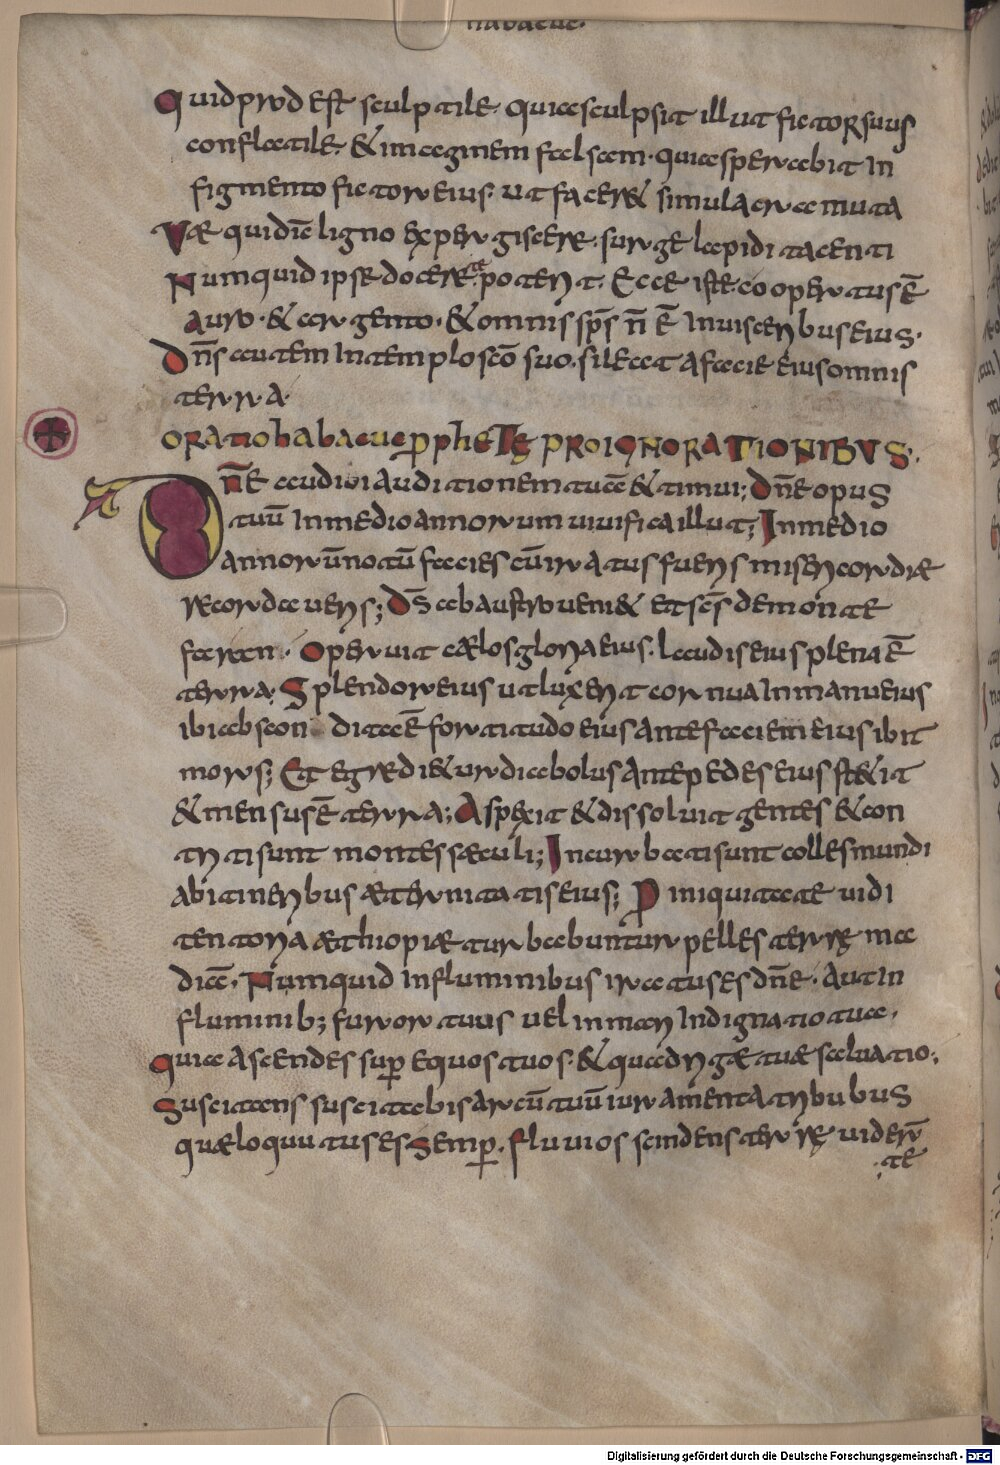 habacuc.
Quid prod est sculptile. quia sculpsit illut fictor suus
conflatile. & imaginem falsam. quia speravebit in
figmento fictor eius. ut facer& simulacra muta
Væ qui diē ligno expergiscere. surge lapidi tacenti
Numquid ipse docere te potent. Ecce iste coopertus ē
auro. & argento. & omnis sp̄s n̄ ē in visceribus eius.
Dn̄s autem in templo scō suo. sileat a facie eius omnis
terra.
ORATIO habacuc pphetę PRO IGNORATIONIBUS.
Dn̄e audivi auditionem tuā & timui; Dn̄e opus
tuū in medio annorum vivifica illut; In medio
annorū notū facies cū iratus fueris misericordiæ
recordaveris; Ds̄ ab austro veni& et scs̄ de monte
faran. Operuit cælos gloria eius. laudis eius plena ē
terra. Splendor eius ut lux erit cornua in manu eius
ibi abscondita ē fortitudo eius ante faciem eius ibit
mors; Et egredi&ur diabolus ante pedes eius st&it
& mensus ē terra; Aspexit & dissolvit gentes & con
triti sunt montes sæculi; Incurbati sunt colles mundi
ab itineribus æternitatis eius; P iniquitate vidi
tentoria æthiopiæ turbabuntur pelles terrę ma
diā. Numquid in fluminibus iratus es dn̄e. Aut in
fluminib; furor tuus vel in mari indignatio tua.
Quia ascendes sup equos tuos. & quadrigæ tuæ salvatio.
Suscitans suscitabis arcū tuū iuramenta tribubus
quæ loquutus es semp. Fluvios scindens terrę viderr̄
te
Digitalisierung gefördert durch die Deutsche Forschungsgemeinschaft - DFG